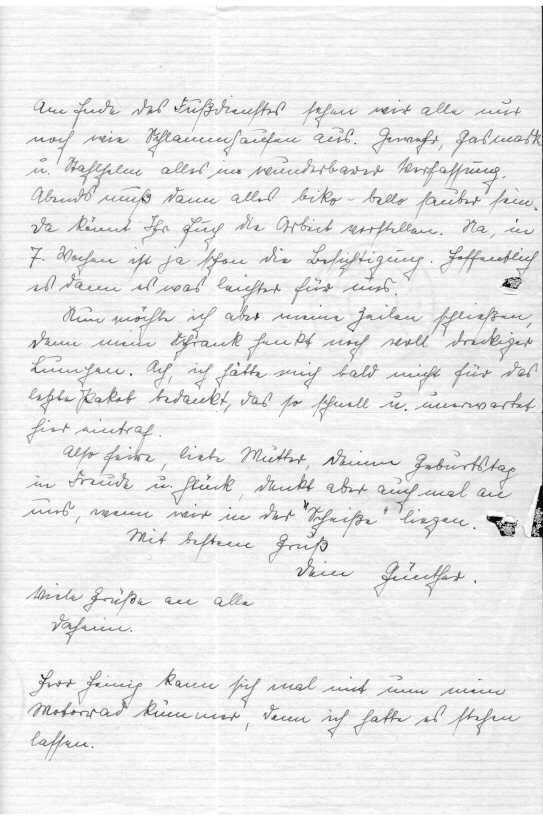 Am Ende des Fußdienstes sehen wir alle nur
noch wie Schlammhaufen aus. Gewehr, Gasmask
u. Stahlhelm alles in wunderbarer Verfassung.
Abends muß dann alles biko-bello sauber sein.
Da könnt Ihr Euch die Arbeit vorstellen. Na, in
7. Wochen ist ja schon die Besichtigung. Hoffentlich
es dann etwas leichter für uns.
Nun möchte ich aber meine Zeilen schließen,
denn mein Schrank henkt noch voll dreckiger
Lumpen. Ach, ich hätte mich bald nicht für das
letzte Paket bedankt, das so schnell u. unerwartet
hier eintraf.
Also feire, liebe Mutter, Deinen Geburtstag
in Freude u. Glück, denkt aber auch mal an
uns, wenn wir in der "Scheiße" liegen.
Mit bestem Gruß
Dein Günther.
Viele Grüße an alle
daheim.
Herr Heinig kann sich mal mit um mein
Motorrad kümmer, denn ich hatte es stehen
lassen.